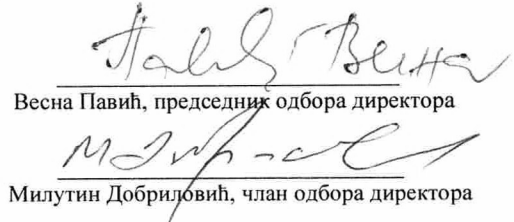 Павић Весна
Весна Павић, председник одбора директора
Милутин Добриловић, члан одбора директора